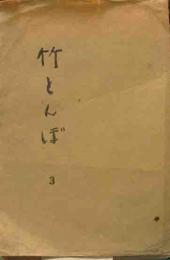 竹とんぼ
3